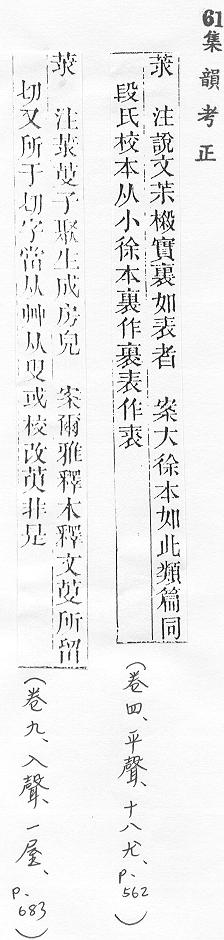 61 集韻考正
莍　注說文茮樧實裏如表者　案大徐本如此類篇同
段氏校本从小徐本裏作裹表作裘
(卷四、平聲、十八尤、p.562)
莍　注莍蓃子聚生成房皃　案爾雅釋木釋文蓃所留
切又所于切字當从艸从叟或校改萸非是
(卷九、入聲、一屋、p.683)